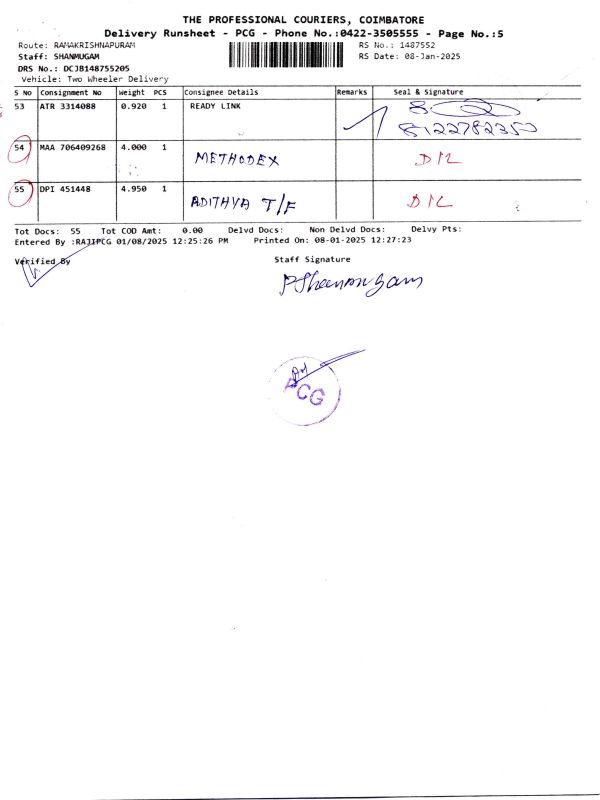 THE PROFESSIONAL COURIERS, COIMBATORE
Delivery Runsheet - PCG - Phone No.:0422-3505555 - Page No.:5
Route: RAMAKRISHNAPURAM RS No.: 1487552
Staff: SHANMUGAM RS Date: 08-Jan-2025
DRS No.: DCJB148755205
Vehicle: Two Wheeler Delivery
S No Consignment No Weight PCS Consignee Details Remarks Seal & Signature
53 ATR 3314088 0.920 1 READY LINK
8122782350
54 MAA 706409268 4.000 1 METHODEX D/L
55 DPI 451448 4.950 1 ADITHYA T/F D/L
Tot Docs: 55 Tot COD Amt: 0.00 Delvd Docs: Non Delvd Docs: Delvy Pts:
Entered By :RAJIPCG 01/08/2025 12:25:26 PM Printed On: 08-01-2025 12:27:23
Verified By Staff Signature
PShanmugam
PCG